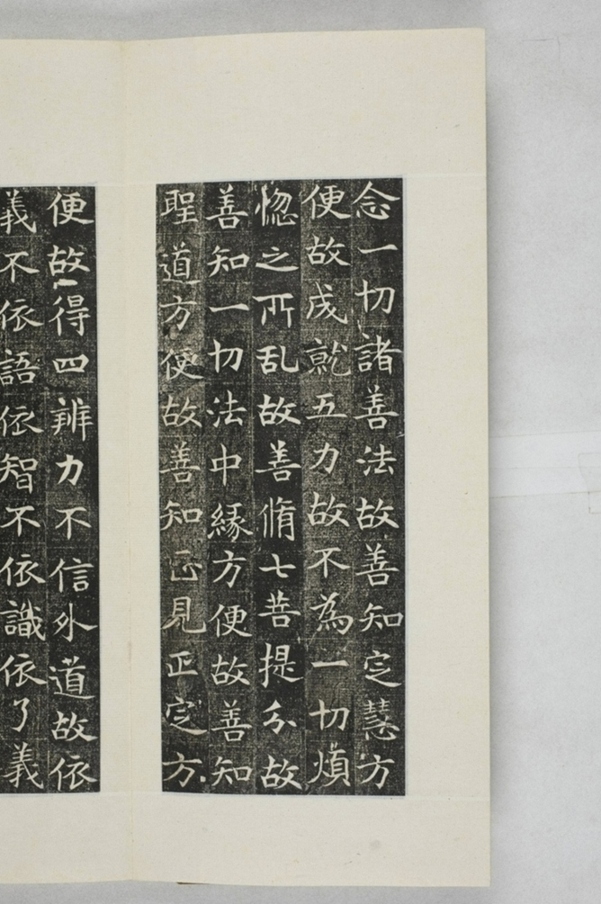 念一切諸善法故善知㝎慧方
便故成就五力故不為一切煩
惚之所乱故善脩七菩提分故
善知一切法中縁方便故善知
聖道方便故善知正見正㝎方
便故得四辨力不信外道故依
義不依語依智不依識依了義